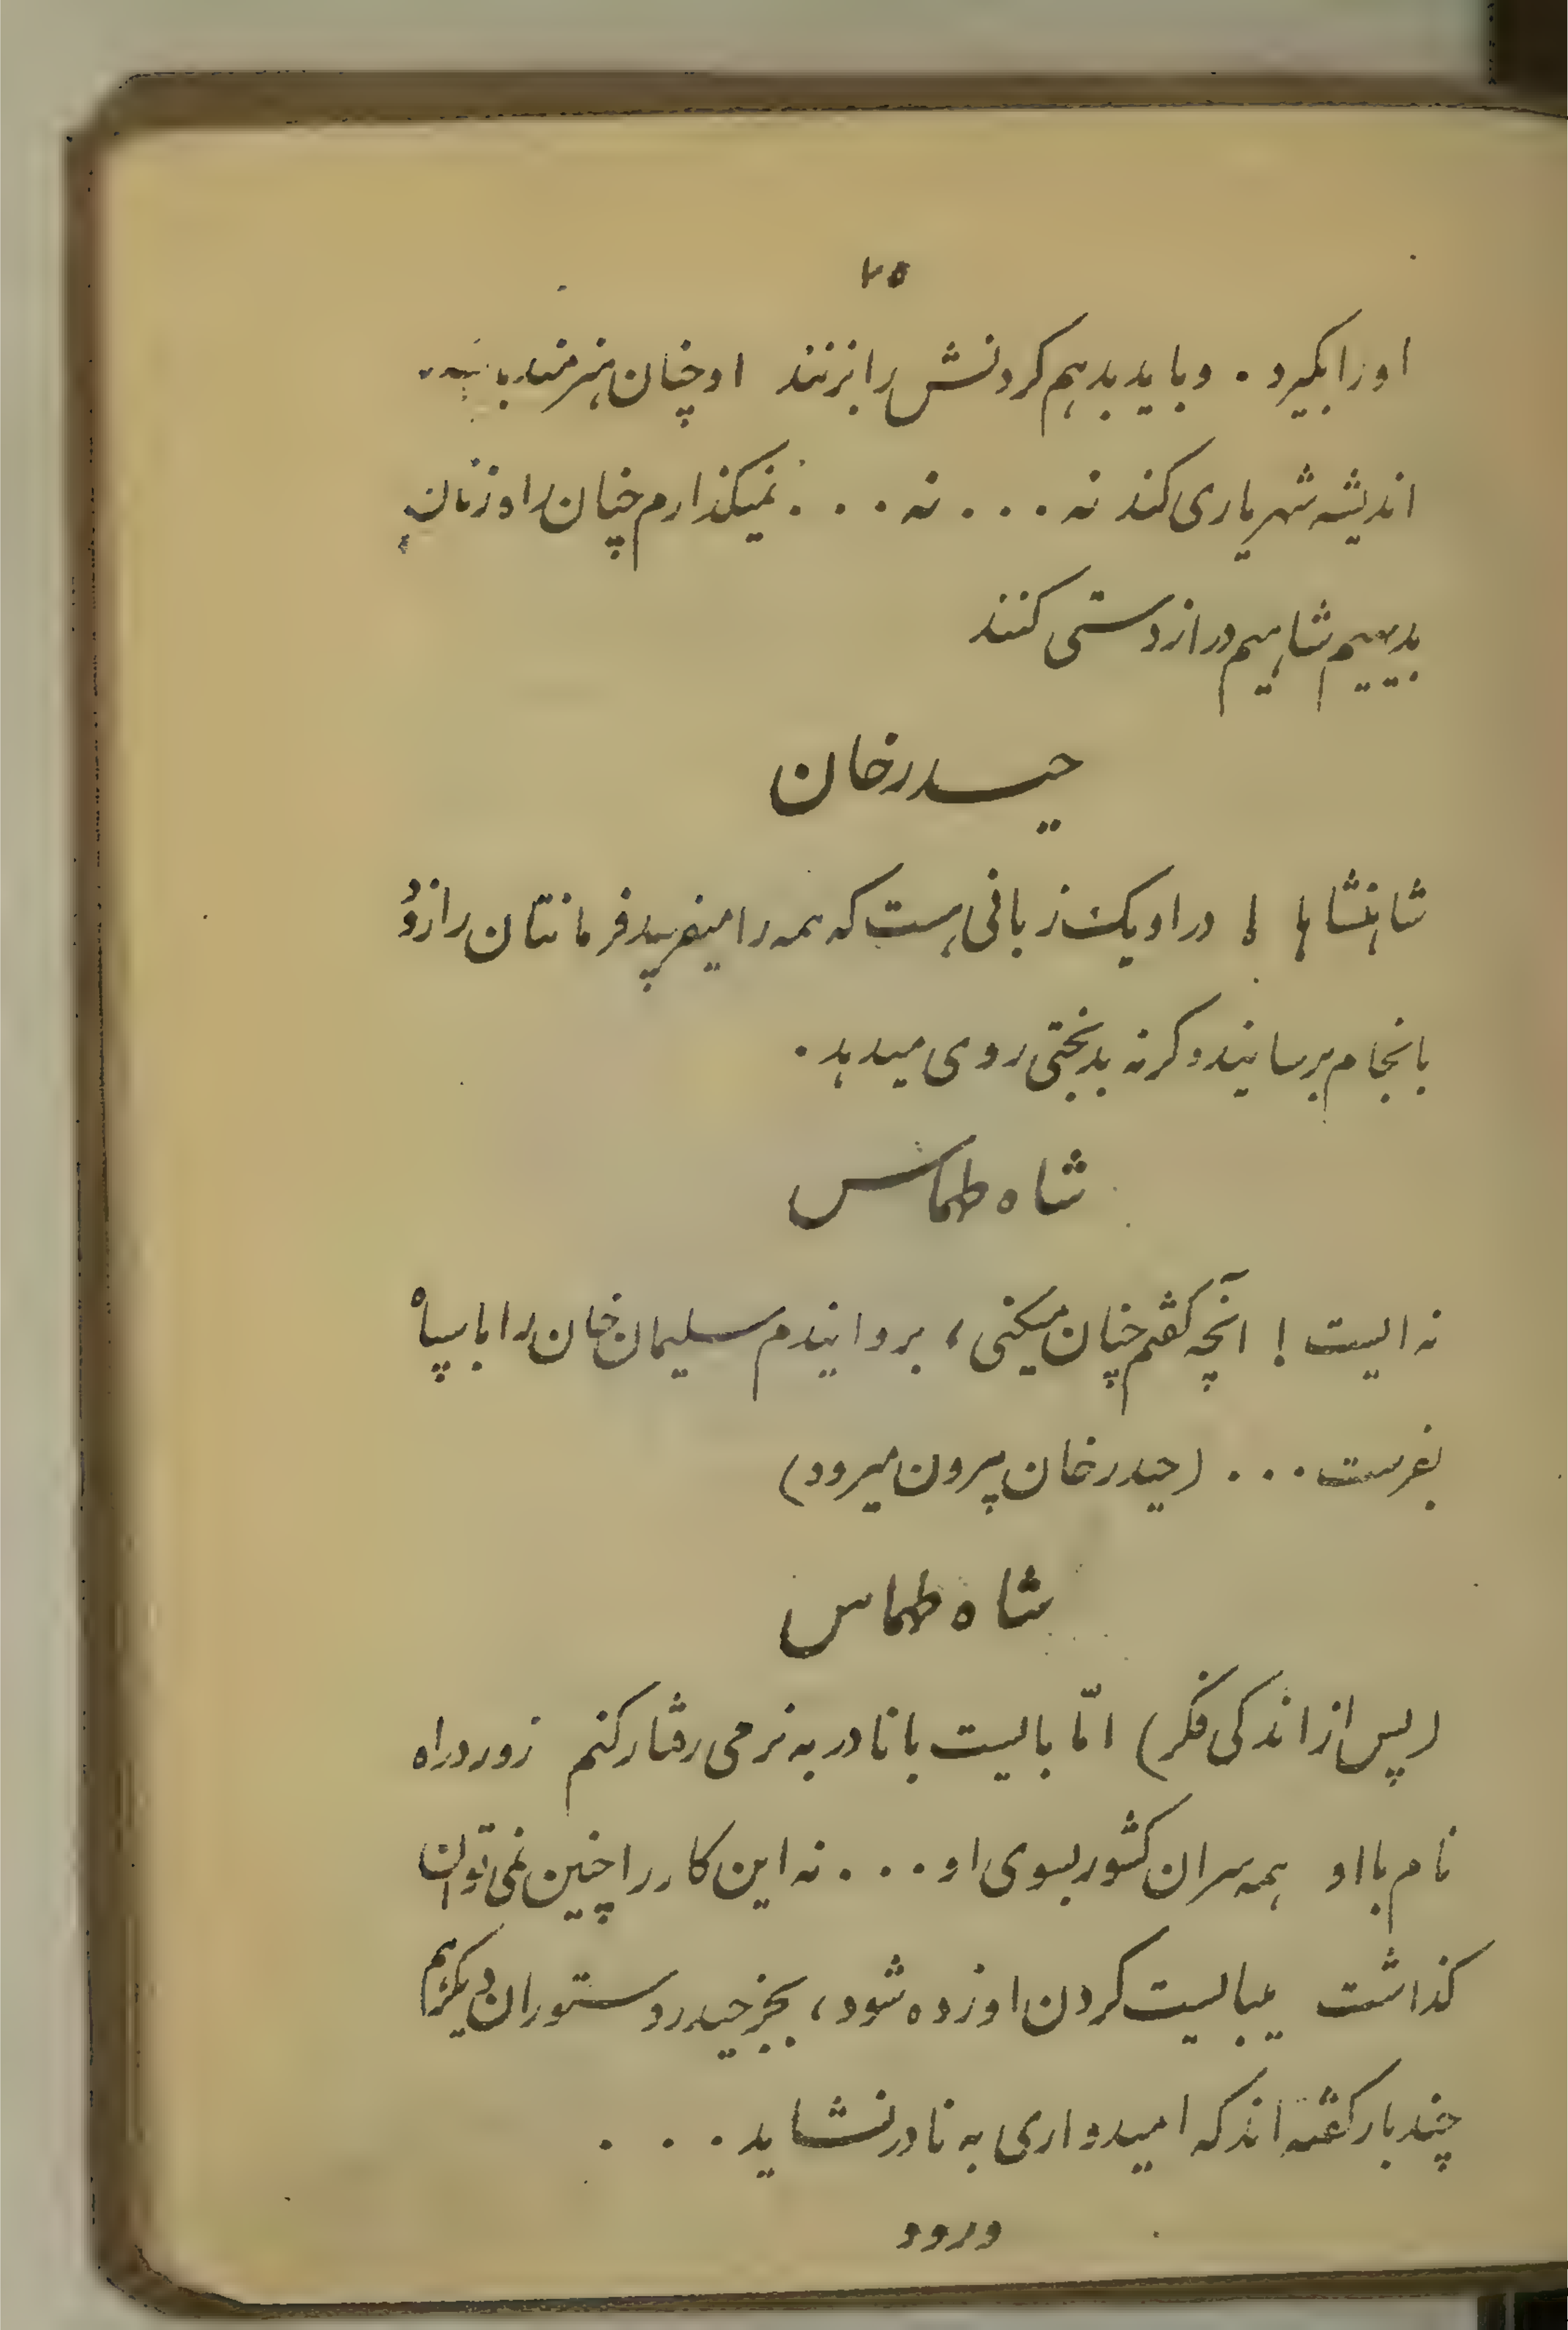 ۲۵
اورابگیرد. وباید بدهم کردنش رابزنند اوچنان هنرمند
اندیشه شهریاری کند نه . . . نه . . . نمیکذارم چنان
بدیهیم شاهیم درازدستی کنند
حیدرخان
شاهنشاها ! دراویک زبانی هست که همه را میفریبد فرمانتان رازود
بانجام برسانیدوکرنه بدبختی روی میدهد.
شاه طهماس
نه ایست ! آنچه کفتم چنان میکنی، بروایندم سلیمان خان را باسپاه
بفرست . . . (حیدرخان بیرون میرود)
شاه طهماس
(پس از اندکی فکر) امّا بایست با نادر به نرمی رفتارکنم زور دراه
نام بااو همه سران کشور بسوی او . . . نه این کار را چنین نمی توان
کذاشت میبایست کردن اوزده شود، بجزحیدر دستوران دیکرهم
چندبار کفته اند که امیدواری به نادر نشاید . . .
ورود